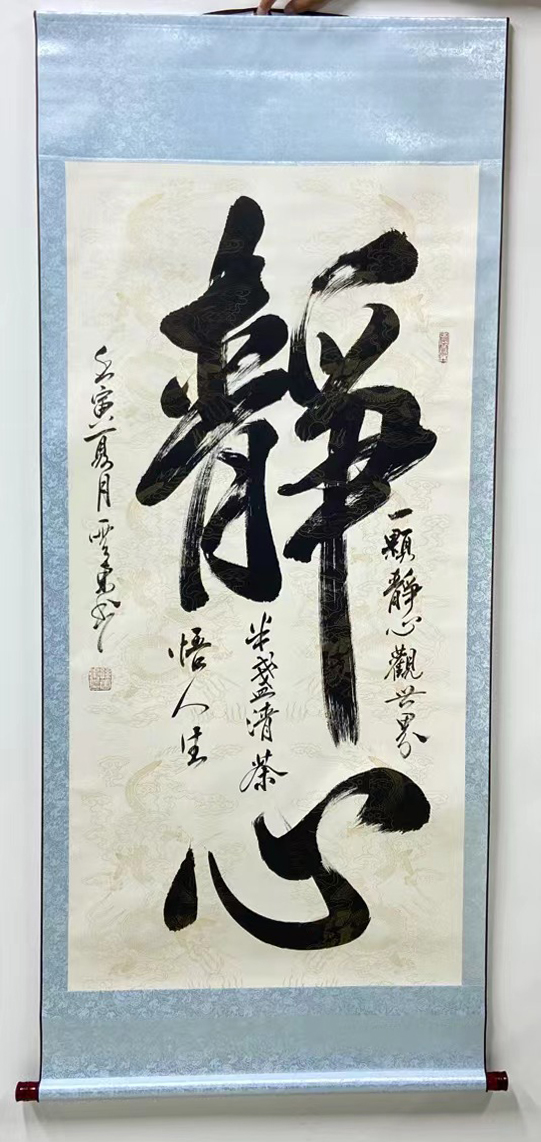 靜心
一顆靜心觀世界
半盞清茶
悟人生
壬寅夏月